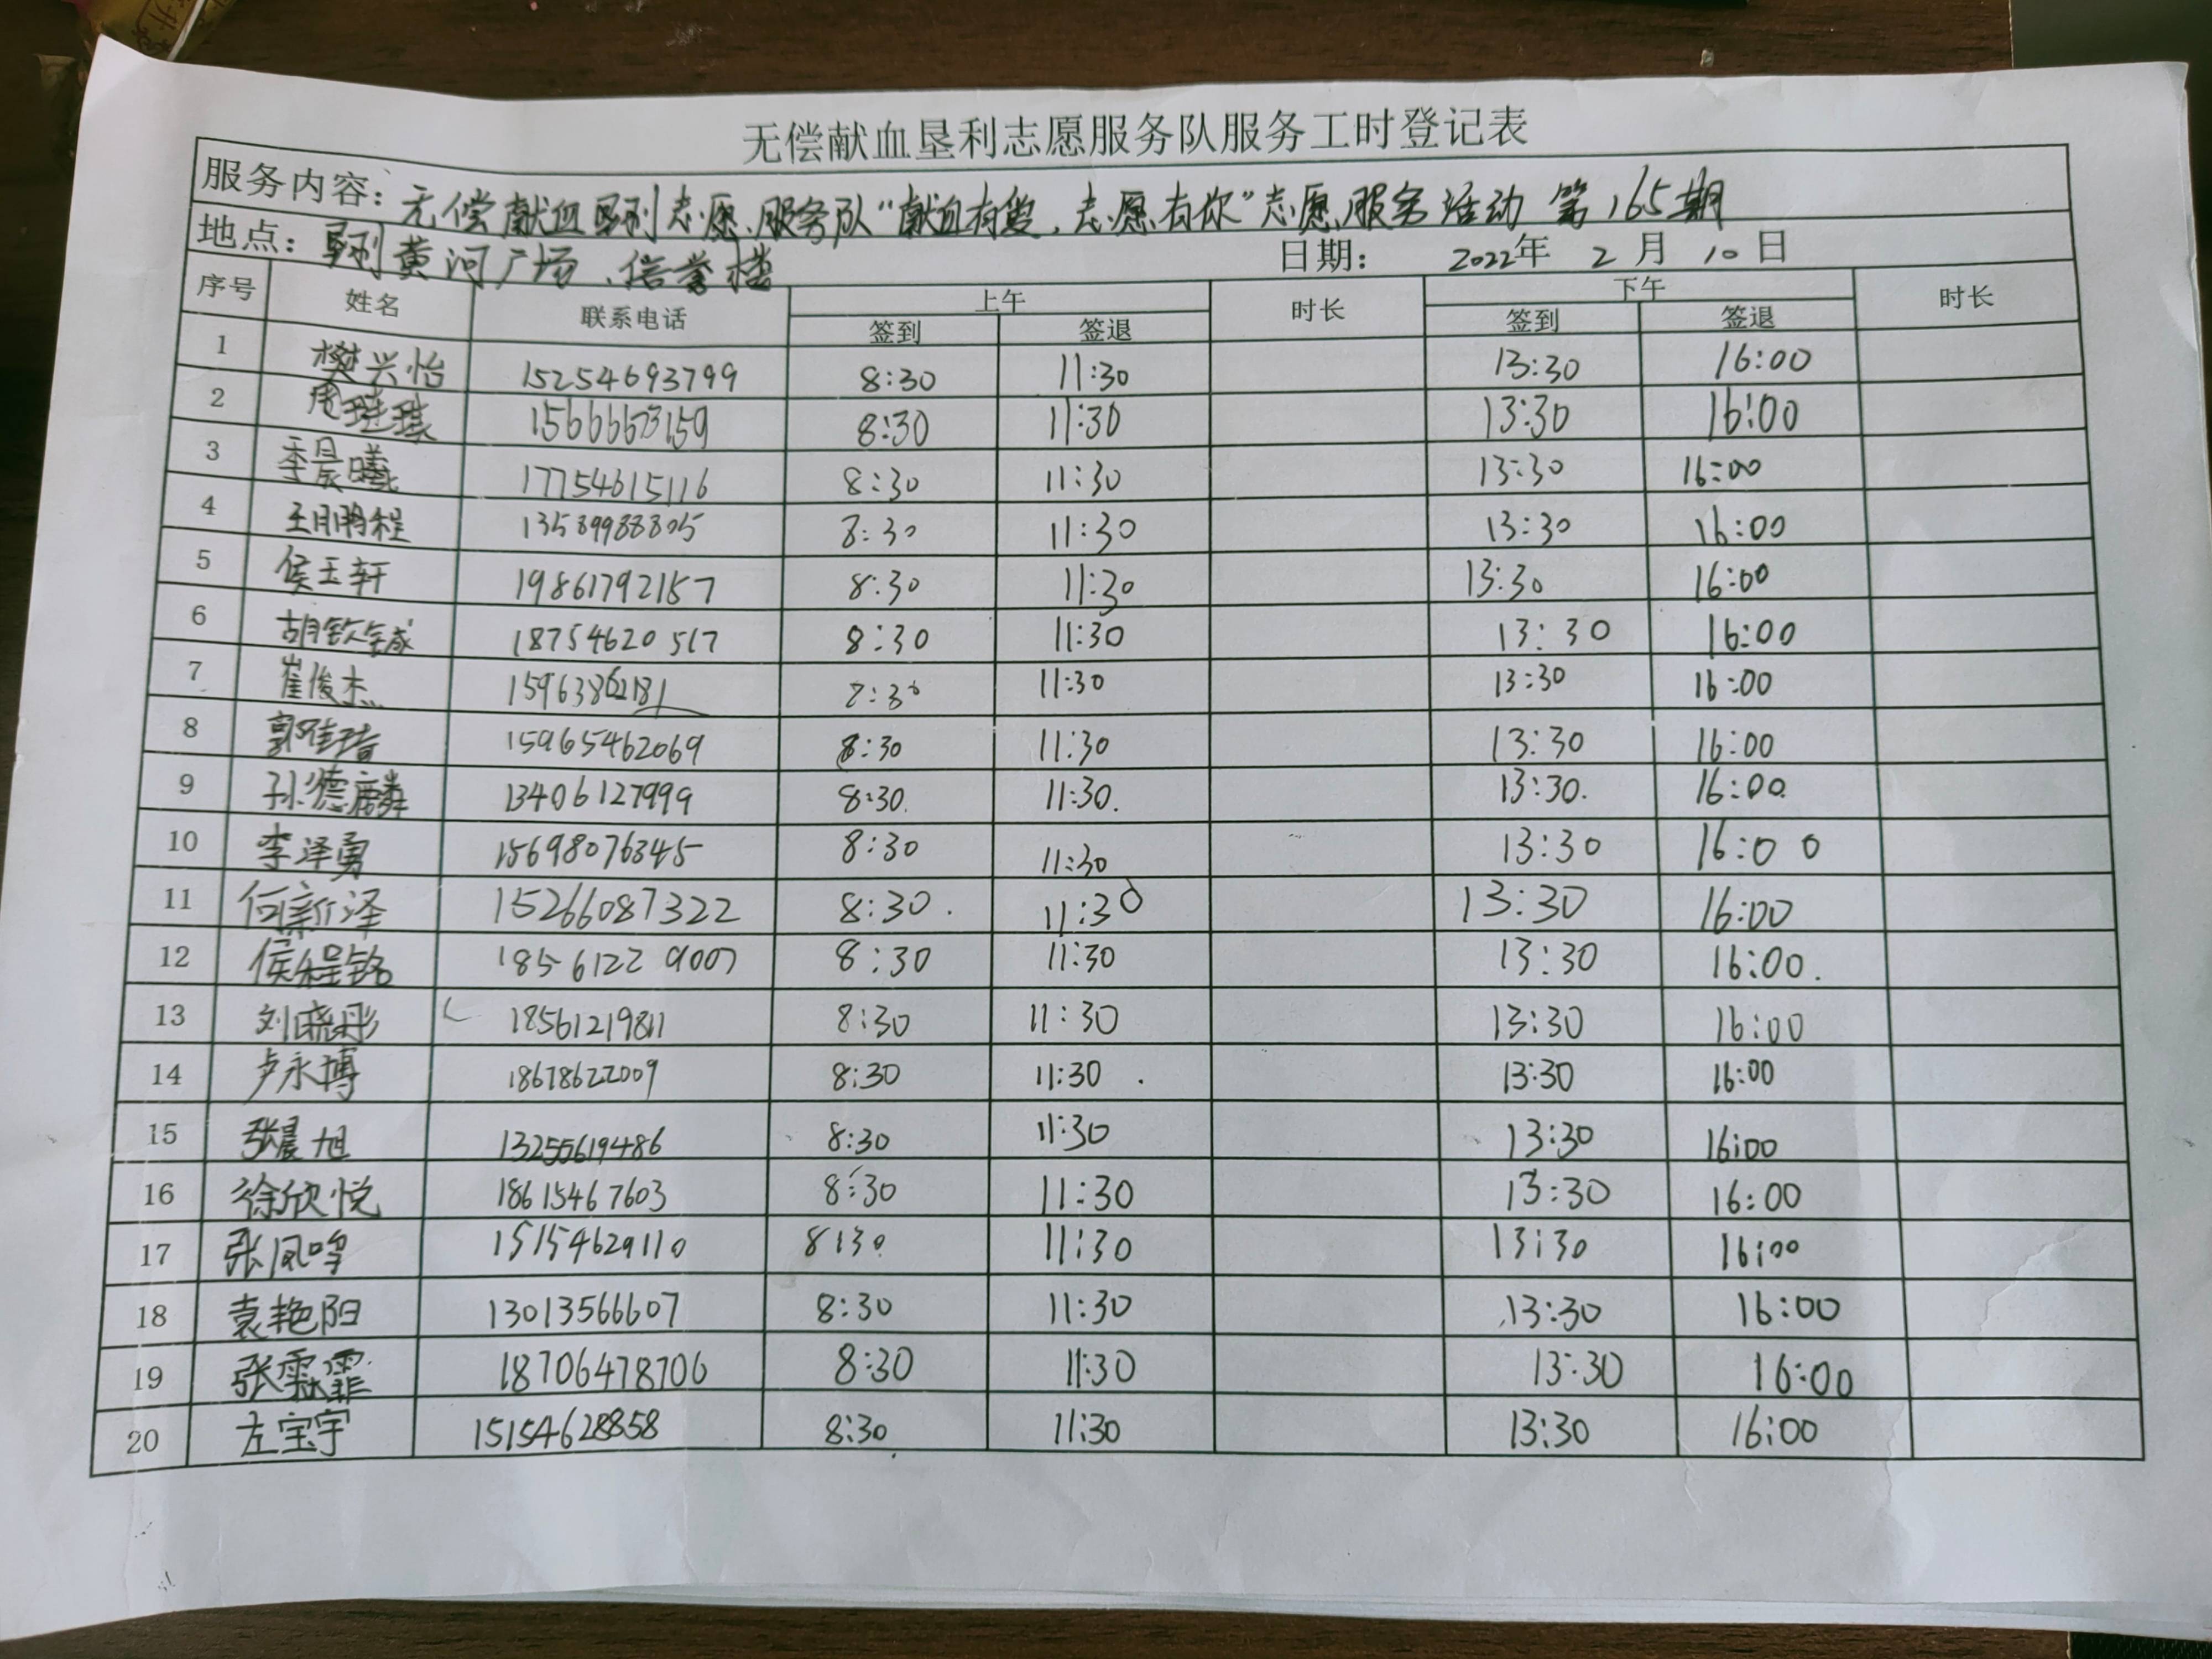 无偿献血垦利志愿服务队服务工时登记表
服务内容：无偿献血垦利志愿服务队“献血有爱，志愿有你”志愿服务活动 第165期
地点：垦利黄河广场、信誉楼 日期： 2022年 2 月 10 日
序号 姓名 联系电话 上午 时长 下午 时长
签到 签退 签到 签退
1 樊兴怡 15254693799 8:30 11:30 13:30 16:00
2 周琏璞 15666673159 8:30 11:30 13:30 16:00
3 李晨曦 17754615116 8:30 11:30 13:30 16:00
4 王鹏程 13589988805 8:30 11:30 13:30 16:00
5 侯玉轩 19861792157 8:30 11:30 13:30 16:00
6 胡钦铖 18754620517 8:30 11:30 13:30 16:00
7 崔俊杰 15963862181 8:30 11:30 13:30 16:00
8 15965462069 8:30 11:30 13:30 16:00
9 孙德麟 13406127999 8:30. 11:30. 13:30. 16:00.
10 李泽勇 15698076345 8:30 11:30 13:30 16:00
11 何新泽 15266087322 8:30. 11:30 13:30 16:00
12 侯程铭 18561229007 8:30 11:30 13:30 16:00.
13 刘晓彤 18561219811 8:30 11:30 13:30 16:00
14 卢永博 18678622009 8:30 11:30. 13:30 16:00
15 张晨旭 13255619486 8:30 11:30 13:30 16:00
16 徐欣悦 18615467603 8:30 11:30 13:30 16:00
17 张凤鸣 15154629110 8:30 11:30 13:30 16:00
18 袁艳阳 13013566607 8:30 11:30 13:30 16:00
19 张霖霏 18706478706 8:30 11:30 13:30 16:00
20 左宝宇 15154628858 8:30 11:30 13:30 16:00